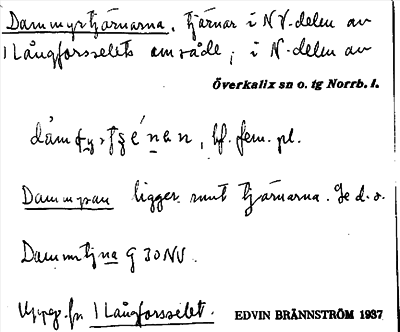 Dammyrtjärnarna, tjärnar i NV-delen av
1 Långforsselets område, i N-delen av
Överkalix sn o. tg Norrb. l.
bf. fem. pl.
Dammyran ligger runt tjärnarna. Se d. o.
Dammtjna G 30 NV.
Uppg. fr. 1 Långforsselet. EDVIN BRÄNNSTRÖM 1937